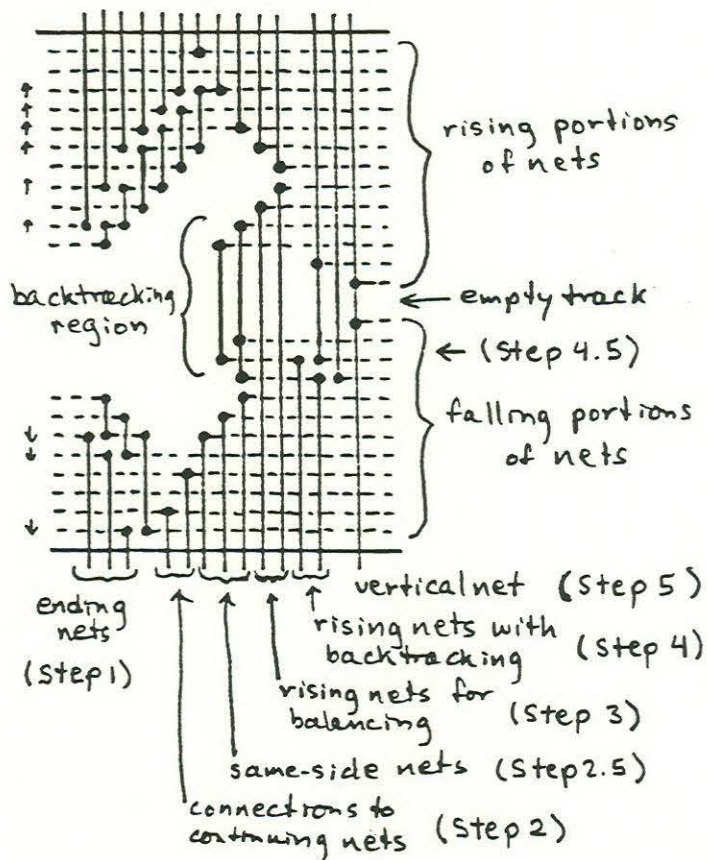 rising portions
of nets
backtracking
region
empty track
(Step 4.5)
falling portions
of nets
ending
nets
(Step 1)
vertical net (Step 5)
rising nets with
backtracking (Step 4)
rising nets for
balancing (Step 3)
same-side nets (Step 2.5)
connections to
continuing nets (Step 2)